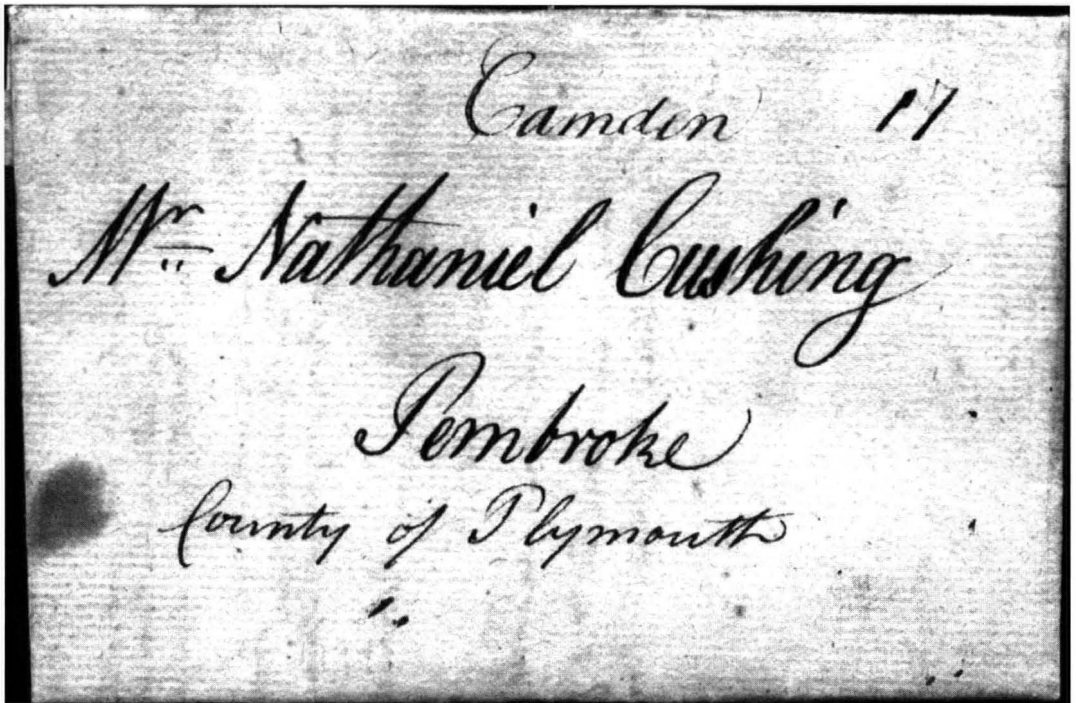 Camden 17
Mr. Nathaniel Cushing
Pembroke
County of Plymouth